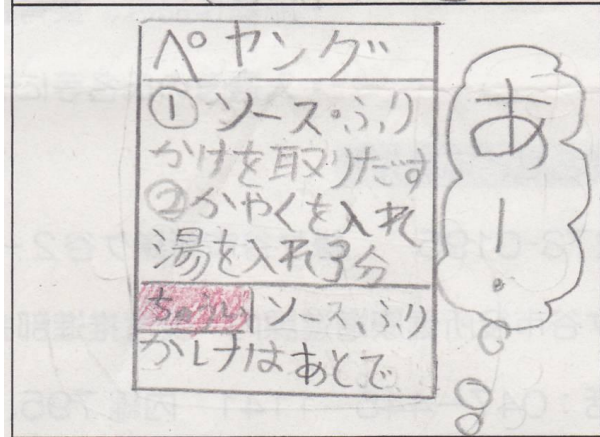 ペヤング
①ソース・ふり
かけを取りだす
②かやくを入れ
湯を入れ3分
ちゅうい ソース、ふり
かけはあとで
あー。